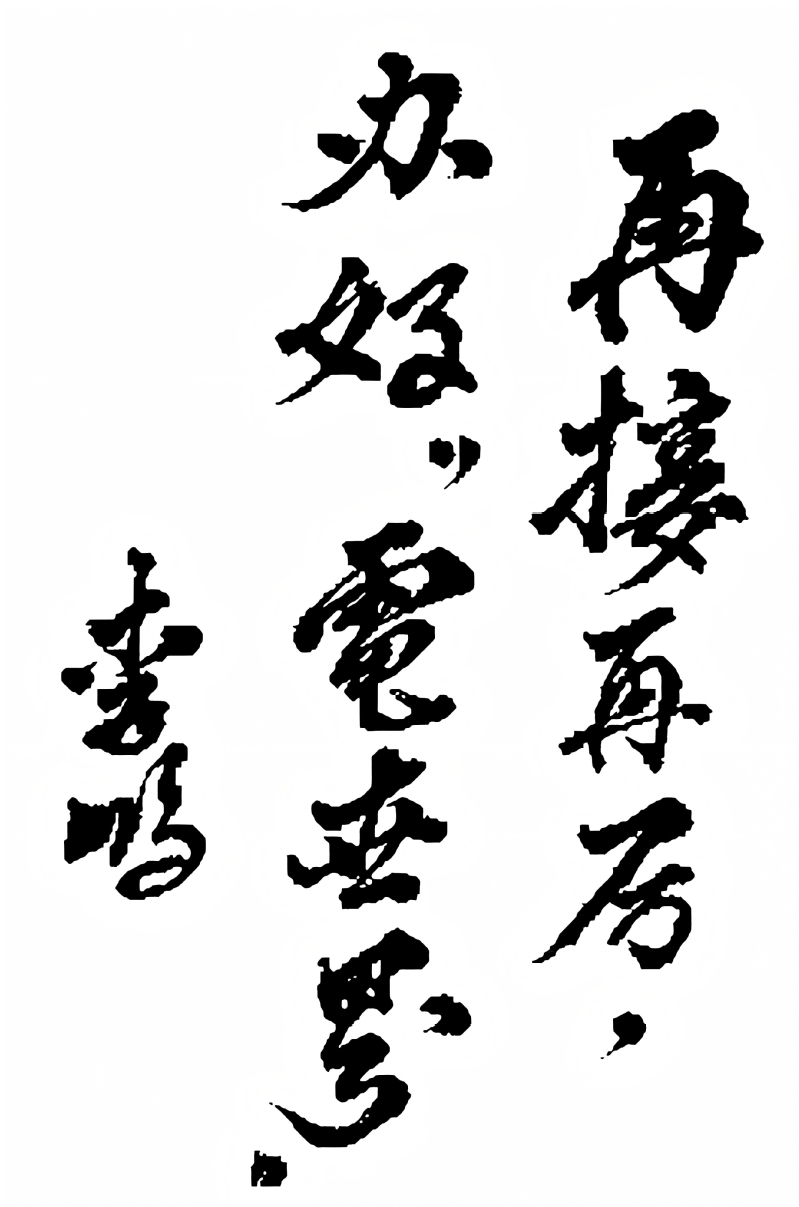 再接再厉，
办好”電世界.
李鹏